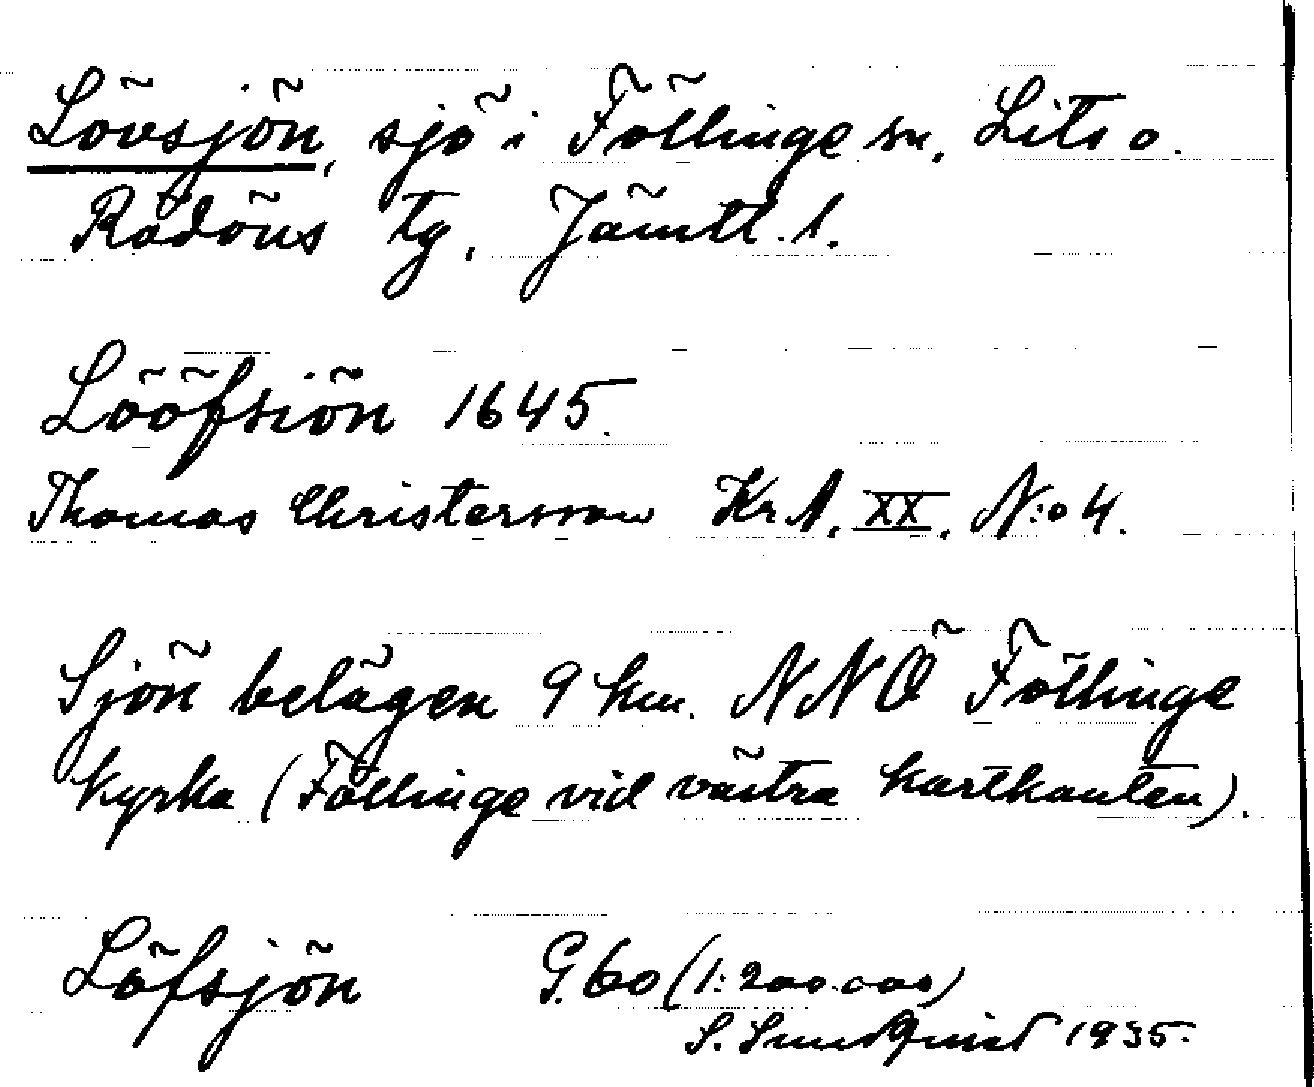 Lövsjön, sjö i Föllinge sn, Lits o.
Rödöns tg, Jämtl. l.
Lööfsiön 1645.
Thomas Christersson Kr A. XX. N:o 4.
Sjön belägen 9 km. NNÖ Föllinge
kyrka (Föllinge vid västra kartkanten).
Löfsjön G. 60 (1:200.000)
S. Sundquist 1935.